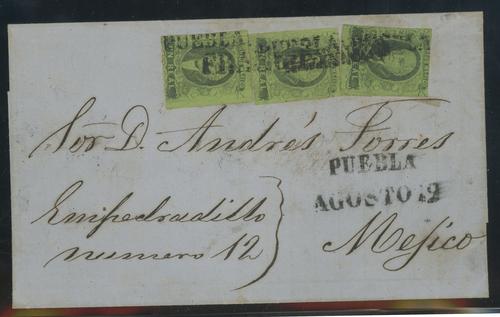 PUEBLA PUEBLA
Sor. D. Andrés Torres
PUEBLA
AGOSTO 12
Empedradillo
numero 12
Mejico